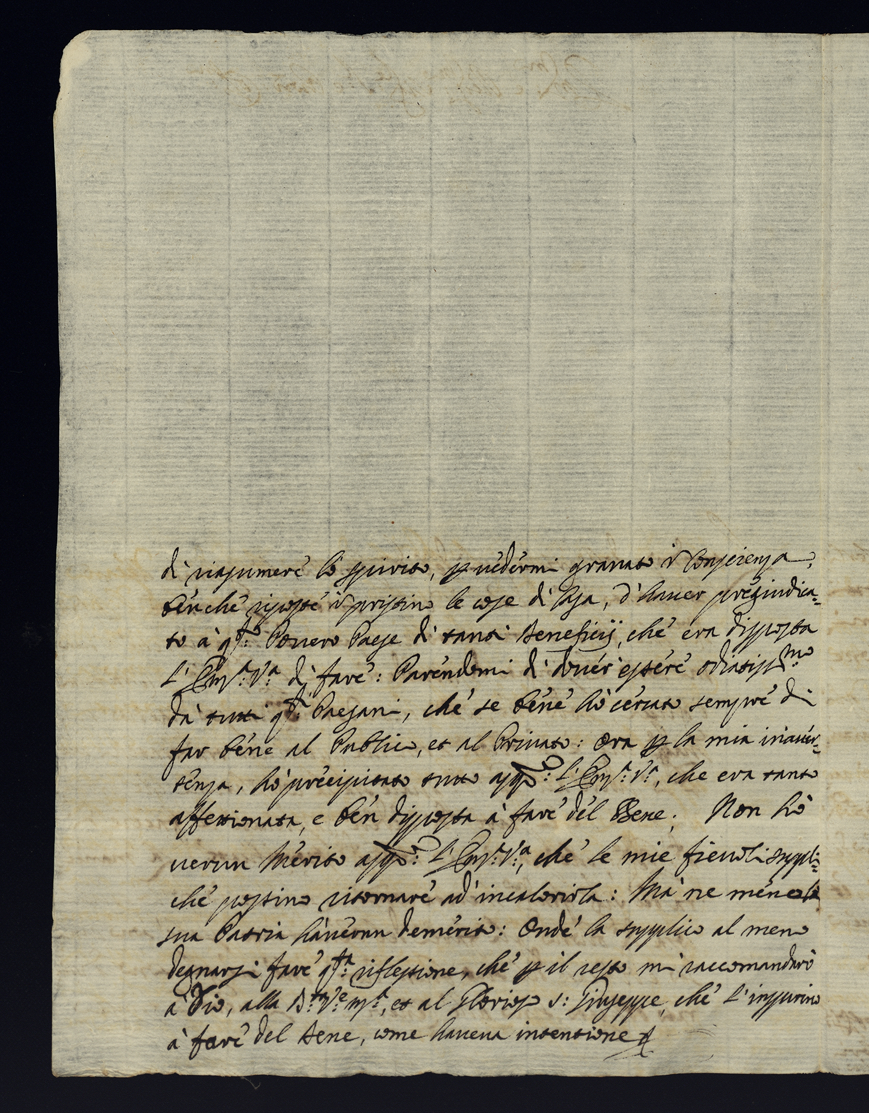 di riasumere lo spirito, p vedermi gravato in Conscienza,
benche riposte in pristino le cose di Casa, d'haver pregiudica=
to à q.to Povero Paese di tanti Beneficij, che era disposta
L'Em.za V.a di fare: Parendomi di dover essere odiatiss.mo
da tutti q.ti Paesani, che se bene hò cercato sempre di
far bene al Publico, et al Privato: Ora p la mia inaver=
tenza, hò precipitato tutto app.o L'Em.za V.a, che era tanto
affettionata, e ben disposta à fare del Bene. Non hò
verun Merito app.o L'Em.za V.a, che le mie fievoli suppli=
che possino ritornare ad' incalorirla: Mà ne meno la
sua Patria hà verun demerito: Onde la supplico al meno
degnarsi fare q.ta riflessione, che p il resto mi raccomandarò
à Dio, alla B.ta V.e M.a, et al Glorioso S. Giuseppe, che L'inspirino
à fare del Bene, come haveva intentione